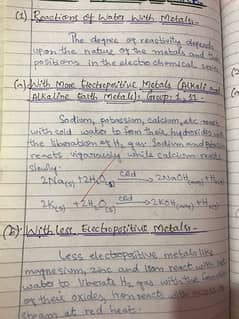 (1) Reactions of Water With Metals:-
The degree of reactivity depends
upon the nature of the metals and
positions in the electro chemical series.
(a) With More Electropositive Metals (Alkali and
Alkaline Earth Metals): Group: I, II
Sodium, potassium, calcium, etc react
with cold water to form their hydroxides with
the liberation of H₂ gas. Sodium and Potassium
reacts vigorously while calcium reacts
slowly.
2Na(s) + 2H₂O cold → 2NaOH(aq) + H₂
2K(s) + 2H₂O cold → 2KOH(aq) + H₂
(b): With Less Electropositive Metals:-
Less electropositive metals like
magnesium, zinc and iron react with
water to liberate H₂ gas with the
of their oxides, Iron reacts with
steam at red heat.